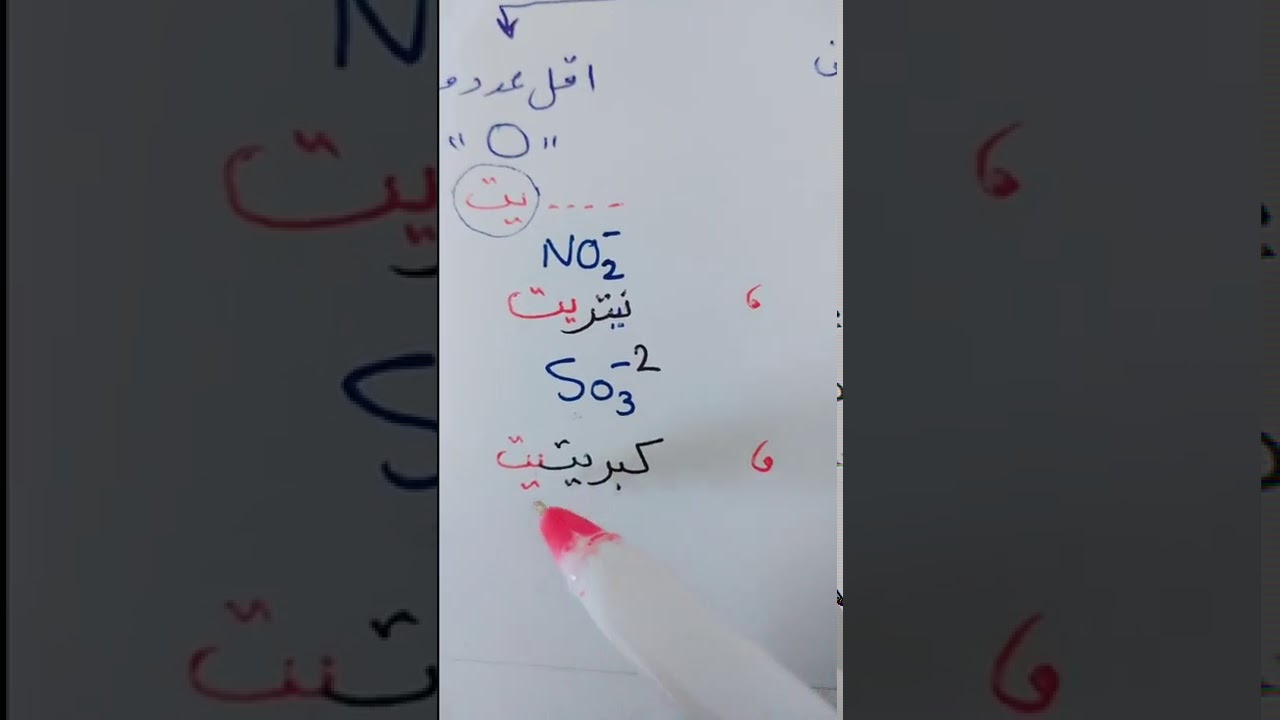 اقل عدد
"O"
.... يت
NO₂⁻
نيتريت
SO₃⁻²
كبريتيت